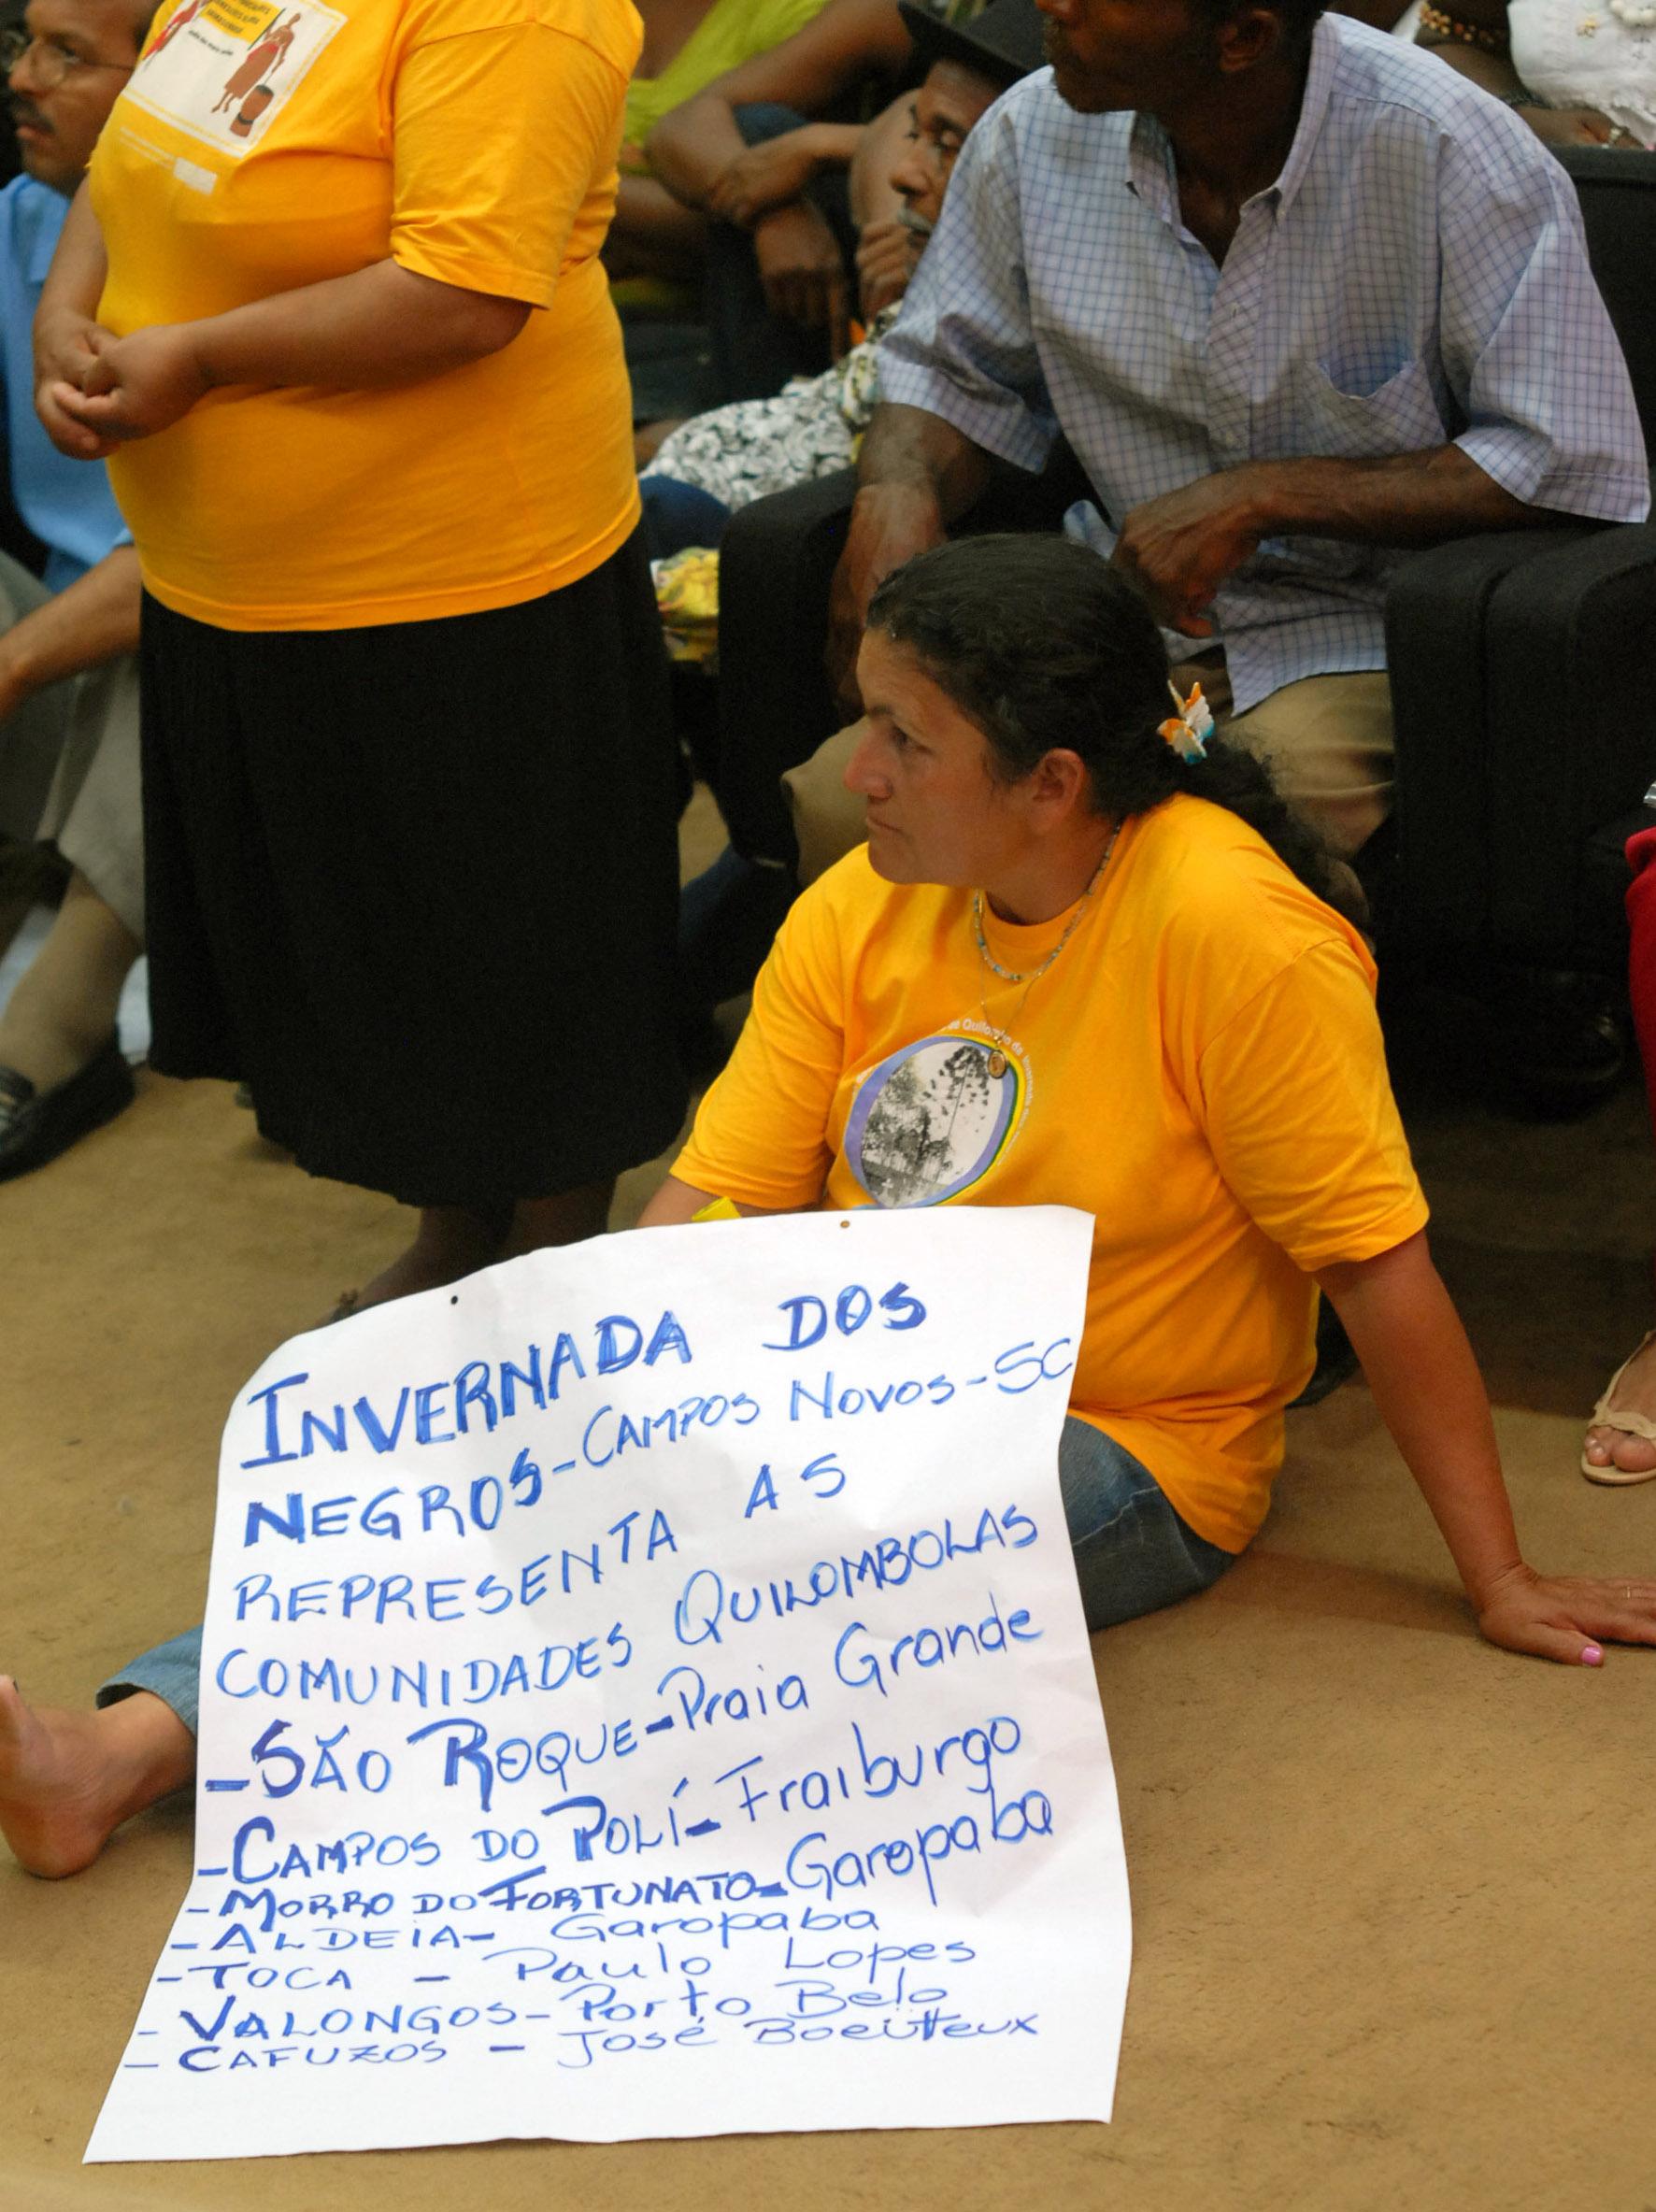 INVERNADA DOS
NEGROS-CAMPOS NOVOS-SC
REPRESENTA AS
COMUNIDADES QUILOMBOLAS
-SÃO ROQUE-Praia Grande
-CAMPOS DO POLÍ-Fraiburgo
-MORRO DO FORTUNATO-Garopaba
-ALDEIA- Garopaba
-TOCA - Paulo Lopes
- VALONGOS-Porto Belo
- CAFUZOS - José Boeitteux